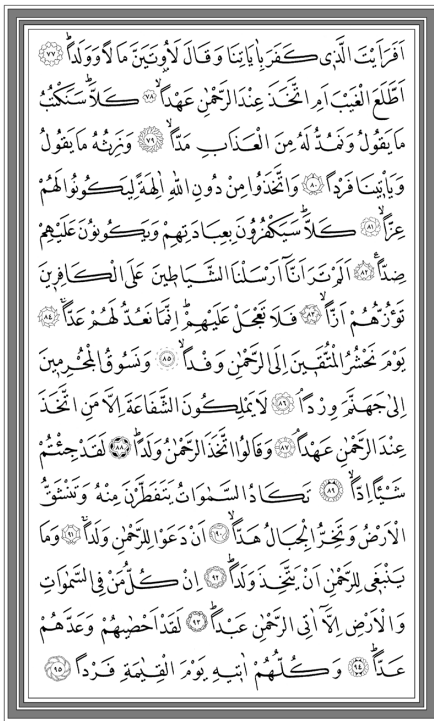 اَفَرَاَيْتَ الَّذٖى كَفَرَ بِاٰيَاتِنَا وَقَالَ لَاُوتَيَنَّ مَالًا وَوَلَدًا ﴿٧٧﴾
اَطَّلَعَ الْغَيْبَ اَمِ اتَّخَذَ عِنْدَ الرَّحْمٰنِ عَهْدًا ﴿٧٨﴾ كَلَّا سَنَكْتُبُ
مَا يَقُولُ وَنَمُدُّ لَهُ مِنَ الْعَذَابِ مَدًّا ﴿٧٩﴾ وَنَرِثُهُ مَا يَقُولُ
وَيَاْتٖينَا فَرْدًا ﴿٨٠﴾ وَاتَّخَذُوا مِنْ دُونِ اللّٰهِ اٰلِهَةً لِيَكُونُوا لَهُمْ
عِزًّا ﴿٨١﴾ كَلَّا سَيَكْفُرُونَ بِعِبَادَتِهِمْ وَيَكُونُونَ عَلَيْهِمْ
ضِدًّا ﴿٨٢﴾ اَلَمْ تَرَ اَنَّا اَرْسَلْنَا الشَّيَاطٖينَ عَلَى الْكَافِرٖينَ
تَؤُزُّهُمْ اَزًّا ﴿٨٣﴾ فَلَا تَعْجَلْ عَلَيْهِمْ اِنَّمَا نَعُدُّ لَهُمْ عَدًّا ﴿٨٤﴾
يَوْمَ نَحْشُرُ الْمُتَّقٖينَ اِلَى الرَّحْمٰنِ وَفْدًا ﴿٨٥﴾ وَنَسُوقُ الْمُجْرِمٖينَ
اِلٰى جَهَنَّمَ وِرْدًا ﴿٨٦﴾ لَا يَمْلِكُونَ الشَّفَاعَةَ اِلَّا مَنِ اتَّخَذَ
عِنْدَ الرَّحْمٰنِ عَهْدًا ﴿٨٧﴾ وَقَالُوا اتَّخَذَ الرَّحْمٰنُ وَلَدًا ﴿٨٨﴾ لَقَدْ جِئْتُمْ
شَيْـًٔا اِدًّا ﴿٨٩﴾ تَكَادُ السَّمٰوَاتُ يَتَفَطَّرْنَ مِنْهُ وَتَنْشَقُّ
الْاَرْضُ وَتَخِرُّ الْجِبَالُ هَدًّا ﴿٩٠﴾ اَنْ دَعَوْا لِلرَّحْمٰنِ وَلَدًا ﴿٩١﴾ وَمَا
يَنْبَغٖى لِلرَّحْمٰنِ اَنْ يَتَّخِذَ وَلَدًا ﴿٩٢﴾ اِنْ كُلُّ مَنْ فِى السَّمٰوَاتِ
وَالْاَرْضِ اِلَّا اٰتِى الرَّحْمٰنِ عَبْدًا ﴿٩٣﴾ لَقَدْ اَحْصٰيهُمْ وَعَدَّهُمْ
عَدًّا ﴿٩٤﴾ وَكُلُّهُمْ اٰتٖيهِ يَوْمَ الْقِيٰمَةِ فَرْدًا ﴿٩٥﴾